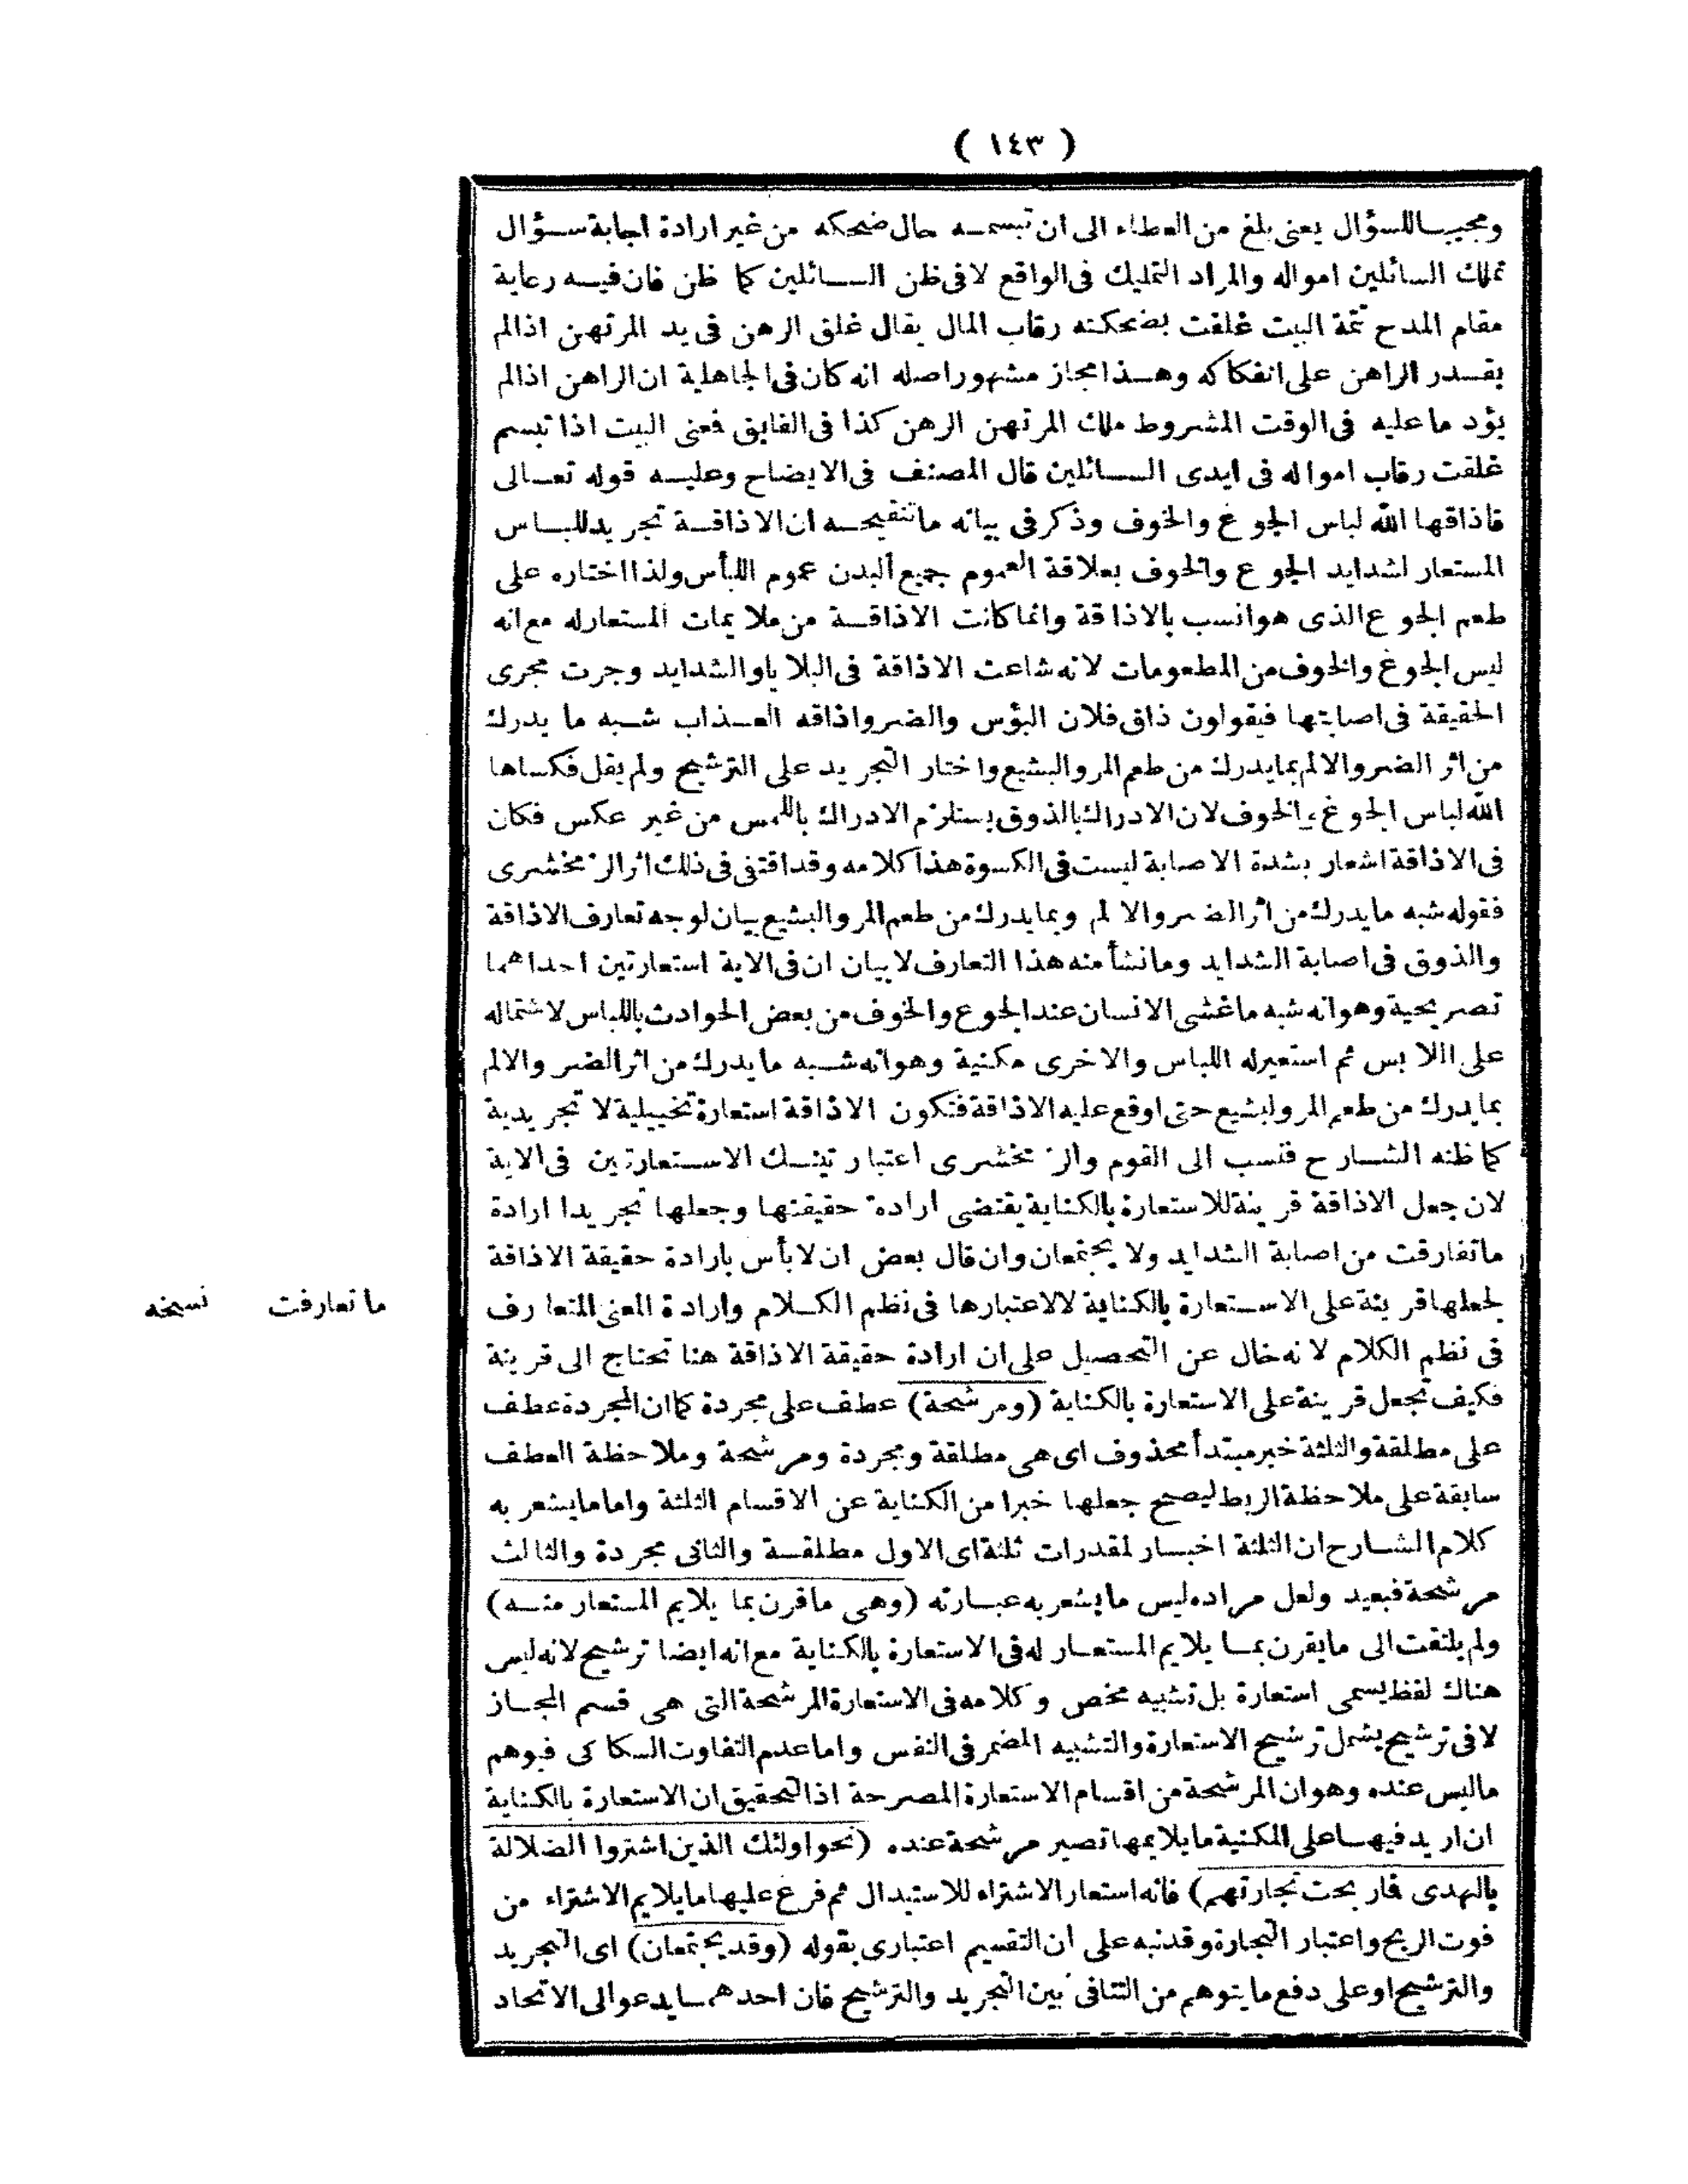 ( ١٤٣ )
ومجيبا للسؤال يعنى بلغ من العطاء الى ان تبسمه حال ضحكه من غير ارادة اجابة سؤال
تملك السائلين امواله والمراد التمليك فى الواقع لا فى ظن السائلين كما ظن فان فيه رعاية
مقام المدح تتمة البيت غلقت بضحكته رقاب المال يقال غلق الرهن فى يد المرتهن اذا لم
يقدر الراهن على انفكاكه وهذا مجاز مشهور اصله انه كان فى الجاهلية ان الراهن اذا لم
يؤد ما عليه فى الوقت المشروط ملك المرتهن الرهن كذا فى الفايق فعنى البيت اذا تبسم
غلقت رقاب امواله فى ايدى السائلين قال المصنف فى الايضاح وعليه قوله تعالى
فاذاقها الله لباس الجوع والخوف وذكر فى بيانه ما تنقيحه ان الاذاقة تجريد للباس
المستعار لشدايد الجوع والخوف بعلاقة العموم جميع البدن عموم اللبأس ولذا اختاره على
طعم الجوع الذى هو انسب بالاذاقة وانما كانت الاذاقة من ملايمات المستعار له مع انه
ليس الجوع والخوف من المطعومات لانه شاعت الاذاقة فى البلايا والشدايد وجرت مجرى
الحقيقة فى اصابتها فيقولون ذاق فلان البؤس والضر واذاقه العذاب شبه ما يدرك
من اثر الضر والالم بما يدرك من طعم المر والبشيع واختار التجريد على الترشيح ولم يقل فكساها
الله لباس الجوع والخوف لان الادراك بالذوق يستلزم الادراك باللمس من غير عكس فكان
فى الاذاقة اشعار بشدة الاصابة ليست فى الكسوة هذا كلامه وقد اقتفى فى ذلك اثر الزمخشرى
فقوله شبه ما يدرك من اثر الضر والالم وبما يدرك من طعم المر والبشيع بيان لوجه تعارف الاذاقة
والذوق فى اصابة الشدايد وما نشأ منه هذا التعارف لا بيان ان فى الاية استعارتين احداهما
تصريحية وهو انه شبه ما غشى الانسان عند الجوع والخوف من بعض الحوادث باللباس لاشتماله
على اللابس ثم استعير له اللباس والاخرى مكنية وهو انه شبه ما يدرك من اثر الضر والالم
بما يدرك من طعم المر والبشيع حتى اوقع عليه الاذاقة فتكون الاذاقة استعارة تخييلية لا تجريدية
كما ظنه الشارح فنسب الى القوم والزمخشرى اعتبار تينك الاستعارتين فى الاية
لان جعل الاذاقة قرينة للاستعارة بالكناية يقتضى ارادة حقيقتها وجعلها تجريدا ارادة
ما تفارقت من اصابة الشدايد ولا يجتمعان وان قال بعض ان لا بأس بارادة حقيقة الاذاقة
لجعلها قرينة على الاستعارة بالكناية لا لاعتبارها فى نظم الكلام وارادة المعنى المتعارف
ما تعارفت نسخه
فى نظم الكلام لانه خال عن التحصيل على ان ارادة حقيقة الاذاقة هنا تحتاج الى قرينة
فكيف تجعل قرينة على الاستعارة بالكناية (ومرشحة) عطف على مجردة كما ان المجردة عطف
على مطلقة والثلثة خبر مبتدأ محذوف اى هى مطلقة ومجردة ومرشحة وملاحظة العطف
سابقة على ملاحظة الربط ليصح جعلها خبرا من الكناية عن الاقسام الثلثة واما ما يشعر به
كلام الشارح ان الثلثة اخبار لمقدرات ثلثة اى الاول مطلقة والثانى مجردة والثالث
مرشحة فبعيد ولعل مراده ليس ما يشعر به عبارته (وهى ما قرن بما يلايم المستعار منه)
ولم يلتفت الى ما يقرن بما يلايم المستعار له فى الاستعارة بالكناية مع انه ايضا ترشيح لانه ليس
هناك لفظ يسمى استعارة بل تشبيه محض وكلامه فى الاستعارة المرشحة التى هى قسم المجاز
لا فى ترشيح يشمل ترشيح الاستعارة والتشبيه المضمر فى النفس واما عدم التفاوت السكاكى فيوهم
ما ليس عنده وهو ان المرشحة من اقسام الاستعارة المصرحة اذ التحقيق ان الاستعارة بالكناية
ان اريد فيها على المكنية ما يلايمها تصير مرشحة عنده (نحو اولئك الذين اشتروا الضلالة
بالهدى فما ربحت تجارتهم) فانه استعار الاشتراء للاستبدال ثم فرع عليها ما يلايم الاشتراء من
فوت الربح واعتبار التجارة وقد نبه على ان التقسيم اعتبارى بقوله (وقد يجتمعان) اى التجريد
والترشيح او على دفع ما يتوهم من التنافى بين التجريد والترشيح فان احدهما يدعو الى الاتحاد